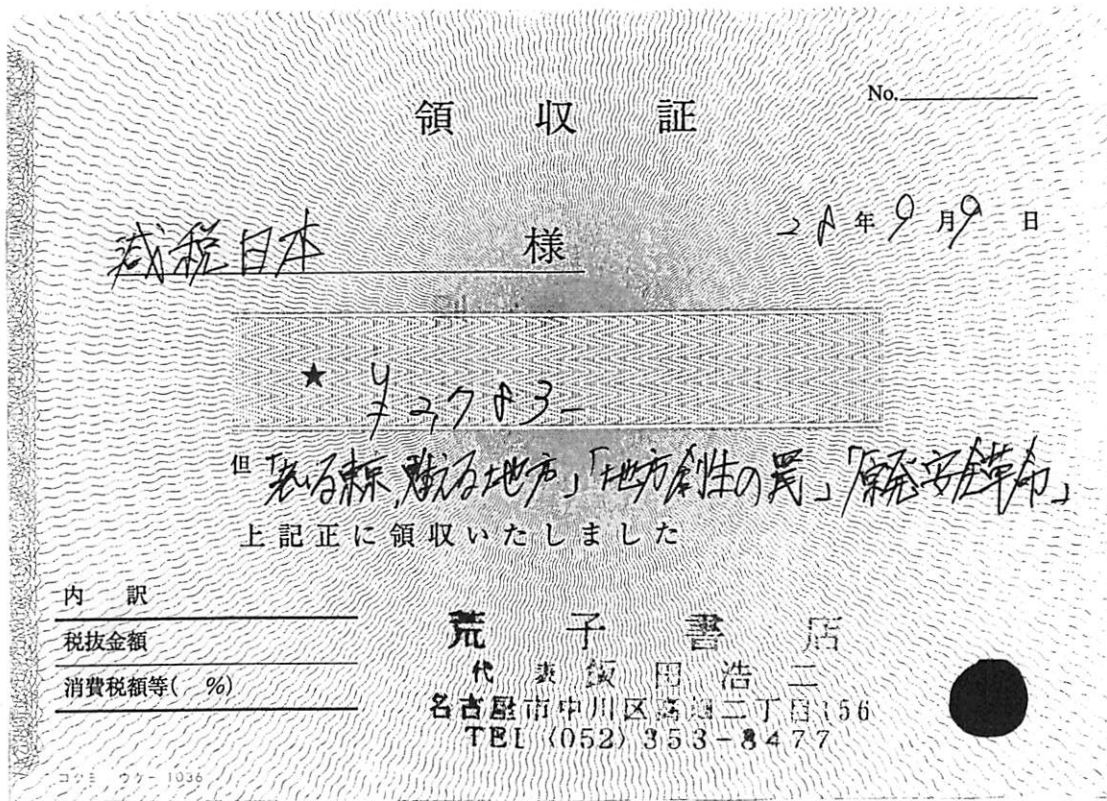 No.
領収証
減税日本 様
28年9月9日
★ ¥2,783-
但「老いる東京、甦る地方」「地方創生の罠」「原発安全革命」
上記正に領収いたしました
内訳
税抜金額
消費税額等( %)
荒子書店
代表 飯田浩二
名古屋市中川区 二丁目156
TEL (052) 353-8477
コクヨ ウケ-1036